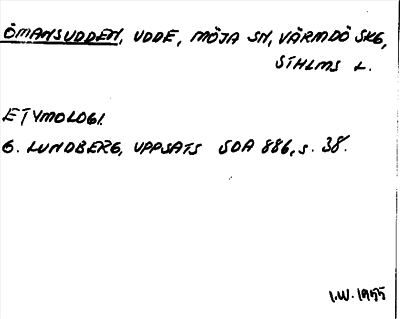 ÖMANSUDDEN, UDDE, MÖJA SN, VÄRMDÖ SKG,
STHLMS L.
ETYMOLOGI.
G. LUNDBERG, UPPSATS SOA 886, s. 38.
I.W. 1955